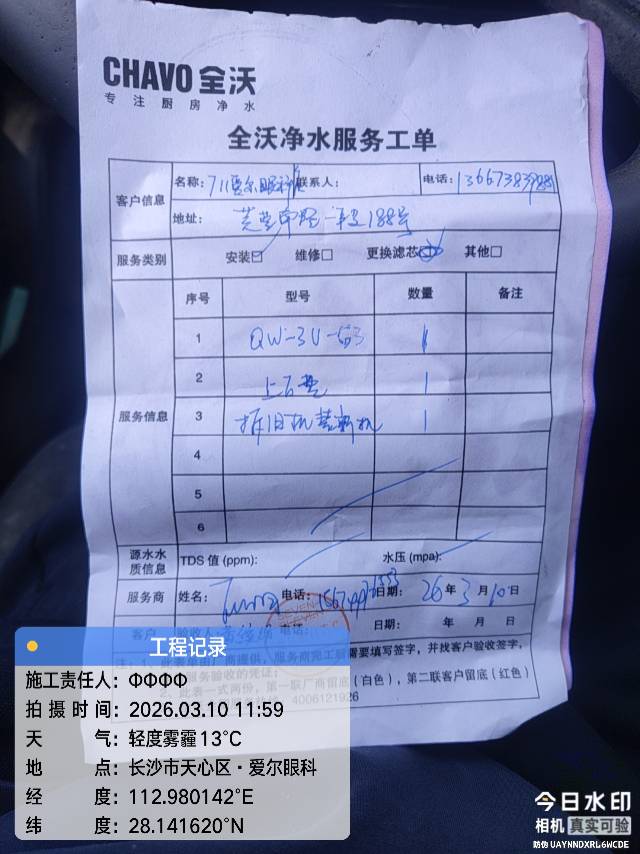 CHAVO 全沃
专注厨房净水
全沃净水服务工单
客户信息
名称: 711爱尔眼科店 联系人: 电话:
地址: 芙蓉中路一段188号
服务类别 安装 维修 更换滤芯 其他
序号 型号 数量 备注
服务信息
1 QW-3U- 1
2 1
3 拆旧机装新机 1
4
5
6
源水水质信息 TDS 值 (ppm): 水压 (mpa):
服务商 姓名: 电话: 日期: 26年3月10日
客户 电话: 日期: 年 月 日
需要填写签字,并找客户验收签字,
服务验收的凭证。
2、此表一式两份,第一联厂商留底(白色),第二联客户留底(红色)
4006121926
工程记录
施工责任人: ФФФФ
拍摄时间: 2026.03.10 11:59
天气: 轻度雾霾 13°C
地点: 长沙市天心区·爱尔眼科
经度: 112.980142°E
纬度: 28.141620°N
今日水印
相机 真实可验
防伪 UAYNNDXRL6WCDE